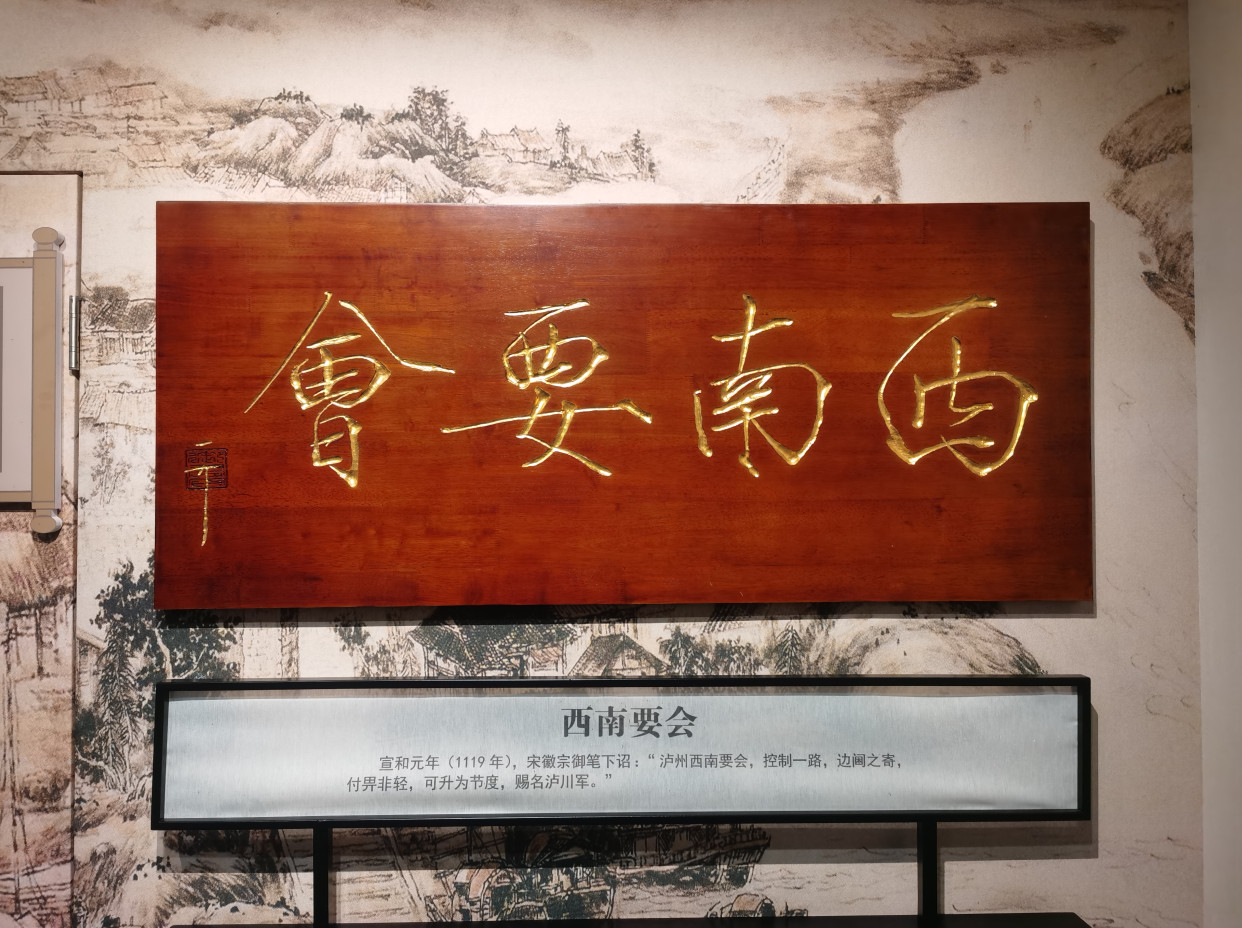 西南要會
西南要会
宣和元年（1119年），宋徽宗御笔下诏：“泸州西南要会，控制一路，边阃之寄，
付畀非轻，可升为节度，赐名泸川军。”